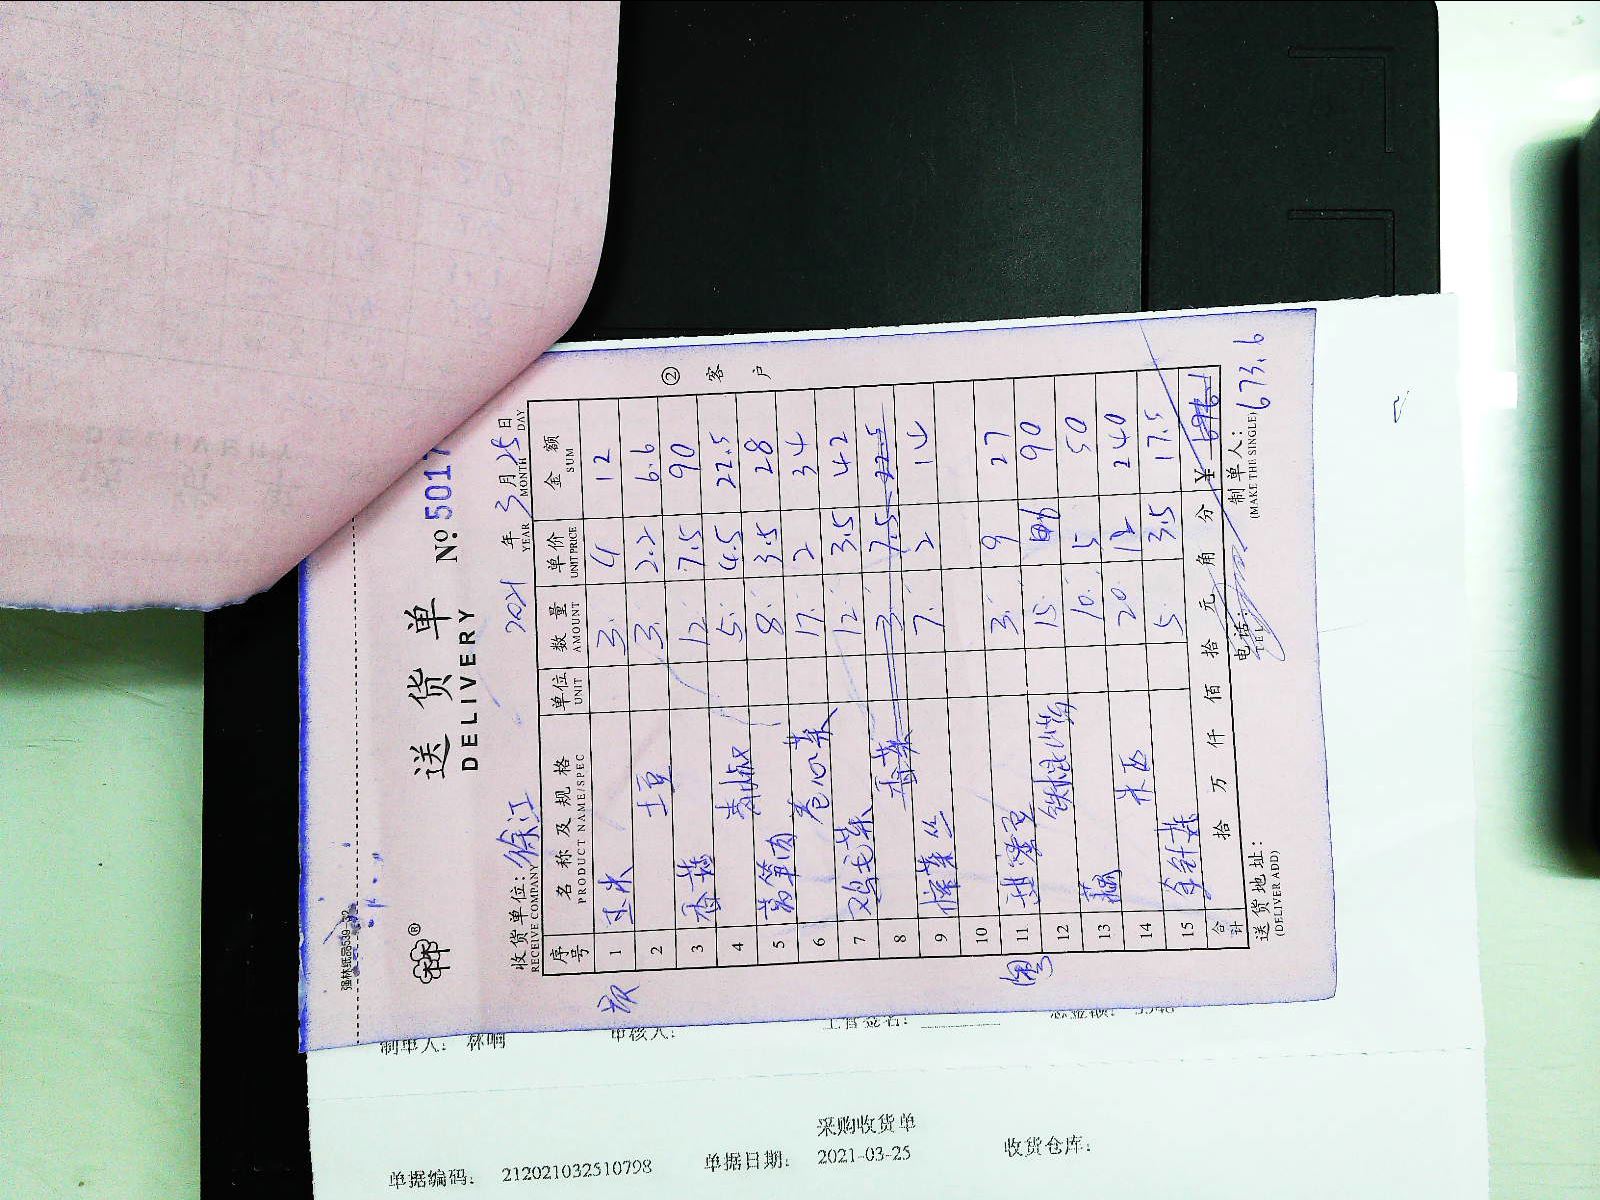 强林纸品539-32
送货单
DELIVERY
№ 5017
② 客户
收货单位：徐江 2021年3月25日
RECEIVE COMPANY YEAR MONTH DAY
序号 名称及规格 单位 数量 单价 金额
PRODUCT NAME/SPEC UNIT AMOUNT UNIT PRICE SUM
1 玉米 3 4 12
2 土豆 3 2.2 6.6
3 香菇 12 7.5 90
4 青椒 5 4.5 22.5
5 莴笋肉 8 3.5 28
6 卷心菜 17 2 34
7 鸡毛菜 12 3.5 42
8 香菜 3 7.5 22.5
9 榨菜丝 7 2 14
10
11 3 9 27
12 铁棍山药 15 90
13 藕 10 5 50
14 20 12 240
15 金针菇 5 3.5 17.5
合计 拾 万 仟 佰 拾 元 角 分 ¥ 696.1
673.6
送货地址： 电话： 制单人：
(DELIVER ADD) TEL (MAKE THE SINGLE)
制单人： 审核人：
采购收货单
单据编码： 212021032510798 单据日期： 2021-03-25 收货仓库：